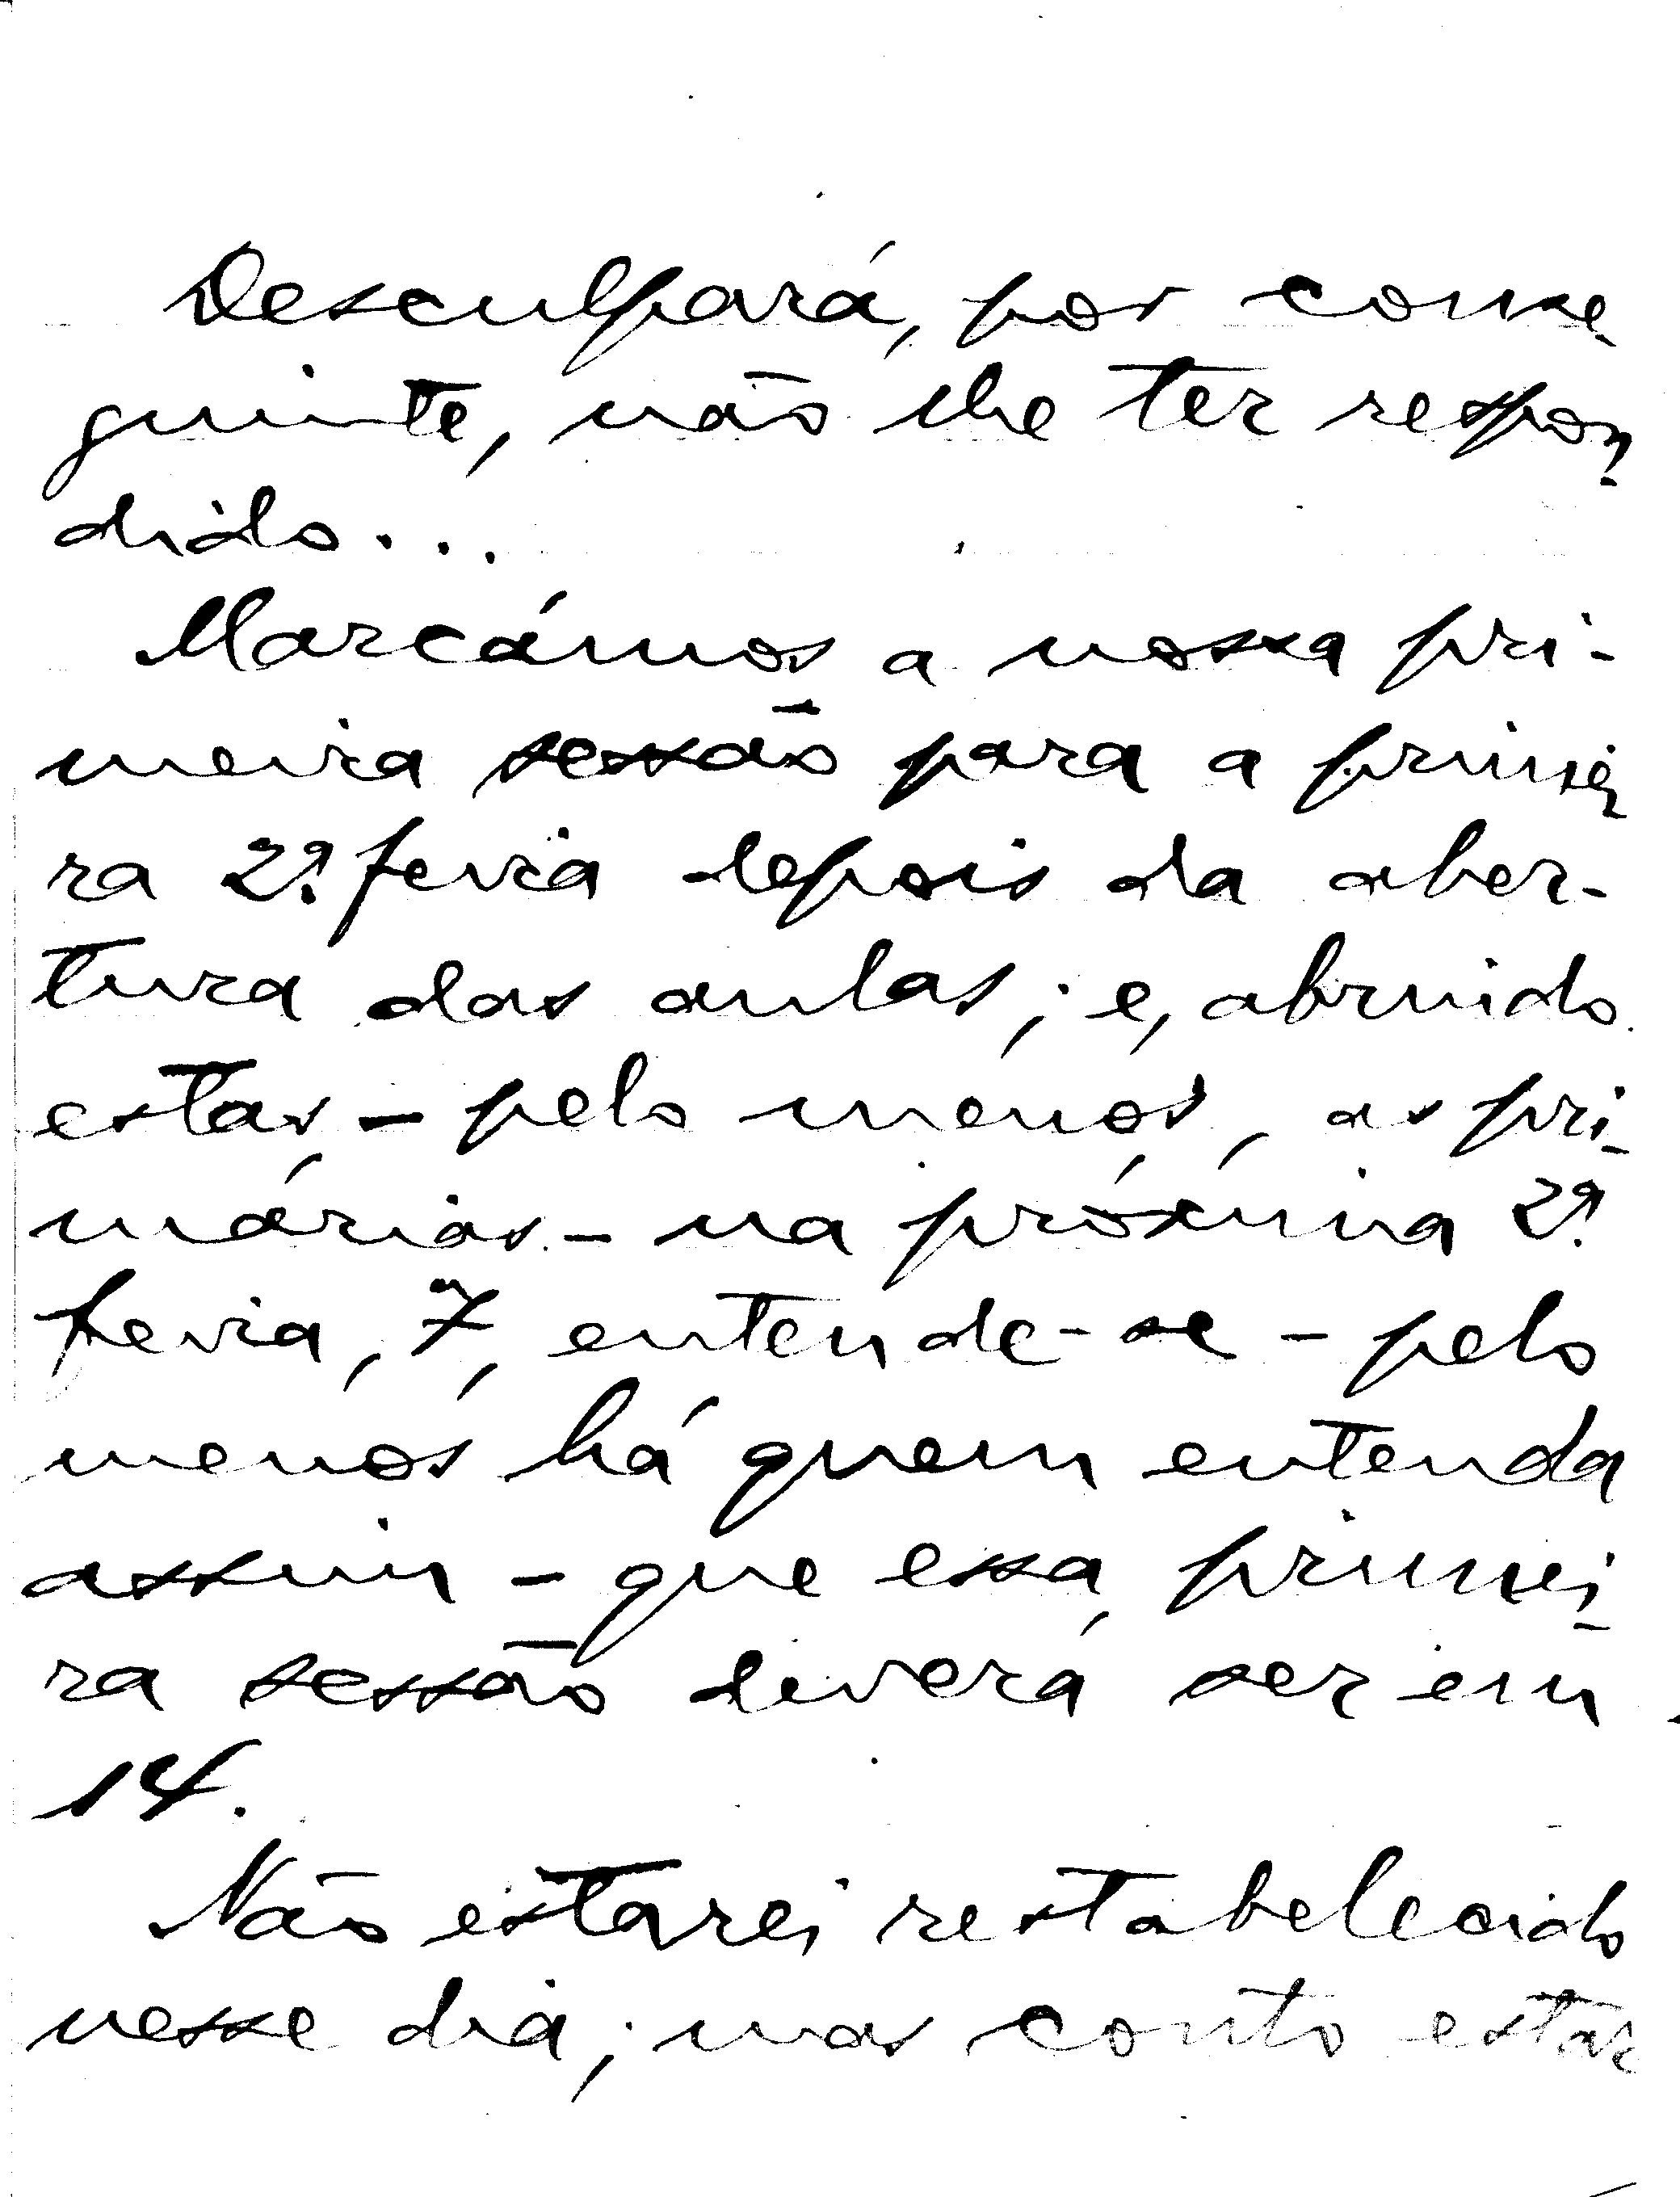 Desculpará, por conse-
guinte, não lhe ter respon-
dido...
Marcámos a nossa pri-
meira sessão para a primei-
ra 2ª feira depois da aber-
tura das aulas; e, abrindo
estas - pelo menos, as pri-
márias - na próxima 2ª
feira, 7, entende-se - pelo
menos há quem entenda
assim - que essa primei-
ra sessão deverá ser em
14.
Não estarei restabelecido
nesse dia; mas conto estar